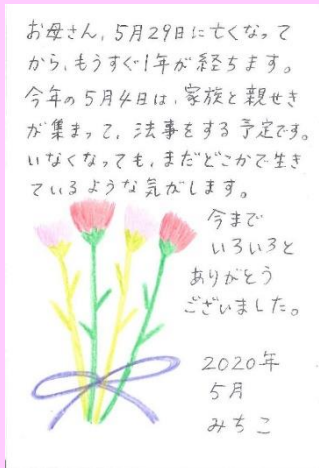 お母さん、5月29日に亡くなって
から、もうすぐ1年が経ちます。
今年の5月4日は、家族と親せき
が集まって、法事をする予定です。
いなくなっても、まだどこかで生き
ているような気がします。
今まで
いろいろと
ありがとう
ございました。
2020年
5月
みちこ